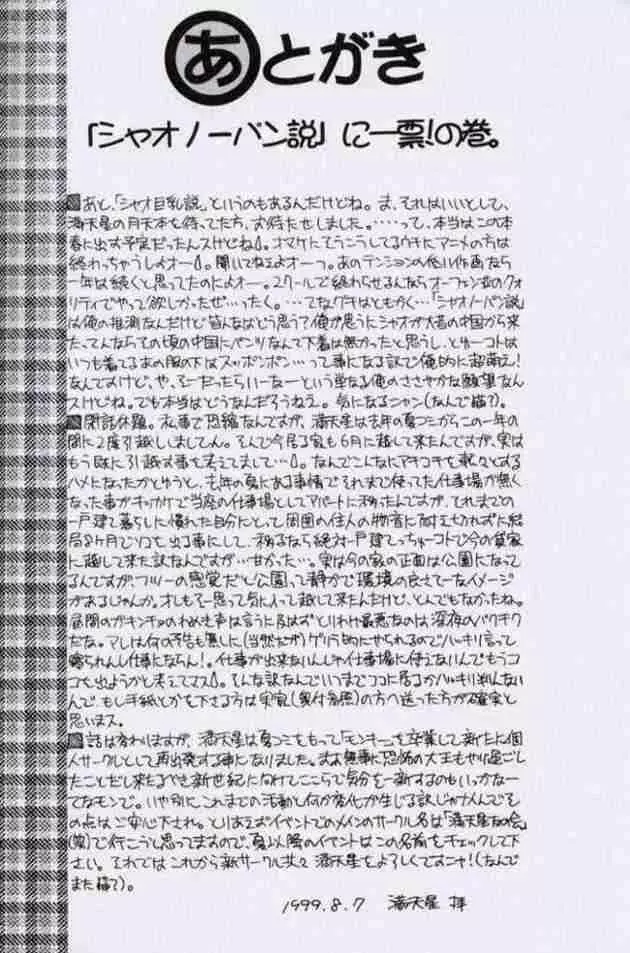 あとがき
「シャオノーパン説」に一票!の巻。
■あと、「シャオ巨乳説」というのもあるんだけどね。ま、それはいいとして、
満天星の月天本を待ってた方、お待たせしました。‥‥って、本当はこの本
春に出す予定だったんスけどね。オマケにそうこうしてるウチにアニメの方は
終わっちゃうしよオー。聞いてねェよオーっ。あのテンションの低い作画なら
一年は続くと思ってたのによオー。2クールで終わらせるんならオーフェン並のクォ
リティでやって欲しかったぜ…ったく。…てなグチはともかく…「シャオノーパン説」
は俺の推測なんだけど皆んなはどう思う?俺が思うにシャオが大昔の中国から来
たってんならその頃の中国にパンツなんて下着は無かったと思うし、とゆーコトは
いつも着てるあの服の下はスッポンポン…って事になる訳で俺的に超萌え!
なんですけど。や、そーだったらいーなーという単なる俺のささやかな願望なん
スけどね。でも本当はどうなんだろうねえ。気になるニャン(なんで猫?)。
■閑話休題。私事で恐縮なんですが、満天星は去年の夏コミからこの一年の
間に2度引越ししましてん。そんで今居る家も6月に越して来たんですが、実は
もう既に引越す事を考えてまして…。なんでこんなにアチコチを転々とする
ハメになったかとゆうと、去年の夏にある事情でそれまで使ってた仕事場が無く
なった事がキッカケで当座の仕事場としてアパートに移ったんですが、それまでの
一戸建て暮らしに慣れた自分にとって周囲の住人の物音に耐えられずに結
局8ヶ月でソコも出る事にして、移るなら絶対一戸建てっちゅーコトで今の貸家
に越して来た訳なんですが…甘かった…。実は今の家の正面は公園になって
るんですが、フツーの感覚だと公園って静かで環境の良さそーなイメージ
があるじゃんか。オレもそー思って気に入って越して来たんだけど、とんでもなかったね。
昼間のガキンチョのわめき声は言うに及ばずとりわけ最悪なのは深夜のバクチク
だな。アレは何の予告も無しに(当然だが)ゲリラ的にやられるのでハッキリ言って
寝られんし仕事にならん!。仕事が出来ないんじゃ仕事場に使えないんでもうココ
も出ようかと考えてマス。そんな訳なんでいつまでココに居るかハッキリ判んない
んで、もし手紙とかを下さる方は実家(奥付参照)の方へ送った方が確実と
思いまス。
■話は変わりますが、満天星は夏コミをもって「モンキー」を卒業して新たに個
人サークルとして再出発する事になりました。まぁ無事に恐怖の大王もやり過ごし
たことだし来たるべき新世紀に向けてここらで気分を一新するのもいっかなー
てなモンで。いや別にこれまでの活動と何か変化が生じる訳じゃけんでそ
の点はご安心下され。とりあえずイベントでのメインのサークル名は「満天星友の会」
(笑)で行こうと思ってますので、夏以降のイベントはこの名前をチェックして下
さい。それではこれから新サークル共々満天星をよろしくですニャ!(なんで
また猫?)。
1999.8.7 満天星 拝